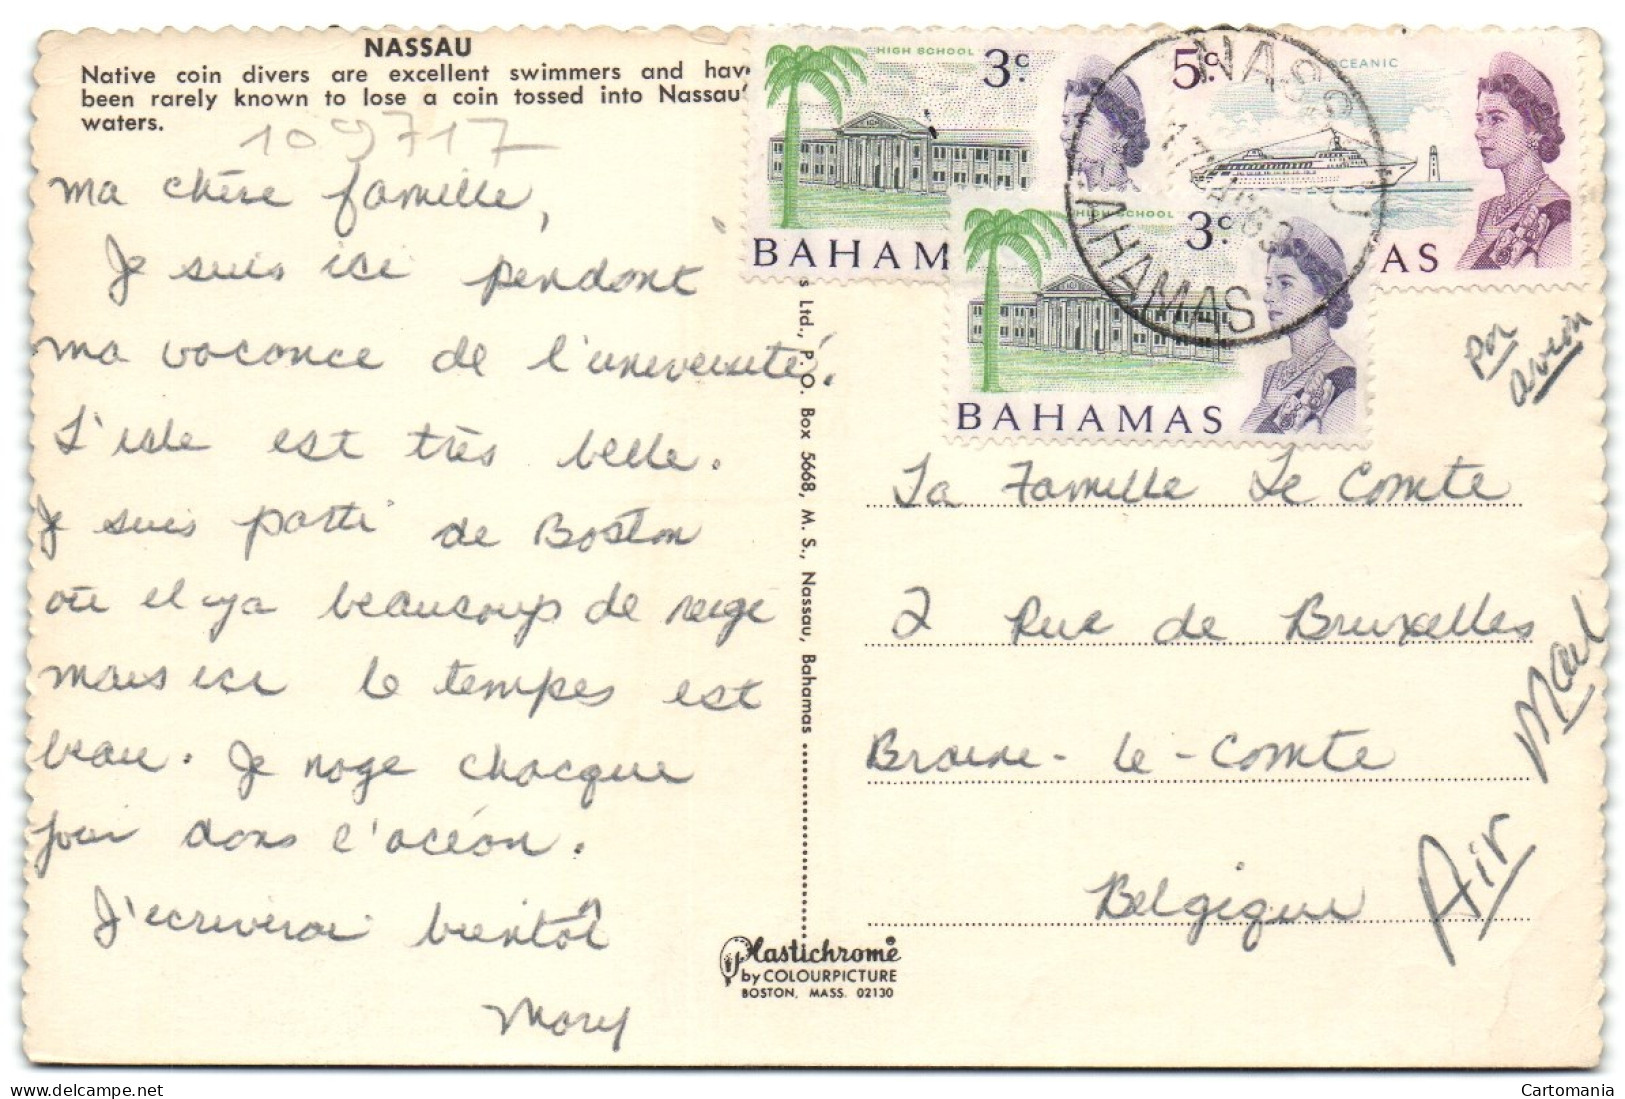 NASSAU
Native coin divers are excellent swimmers and hav
been rarely known to lose a coin tossed into Nassau'
waters.
109717
ma chère famille,
Je suis ici pendant
ma vacance de l'université.
L'isle est très belle.
Je suis parti de Boston
où il ya beaucoup de neige
mais ici le tempes est
beau. Je nage chacque
jour dans l'océan.
J'ecriverai bientôt
Mary
s Ltd., P. O. Box 5668, M. S., Nassau, Bahamas
Plastichrome
by COLOURPICTURE
BOSTON, MASS. 02130
HIGH SCHOOL
3c
BAHAM
5c
OCEANIC
AS
HIGH SCHOOL
3c
BAHAMAS
NASSAU
BAHAMAS
par
avion
La Famille Le Comte
2 Rue de Bruxelles
Braine-le-Comte
Belgique
Air Mail
Cartomania